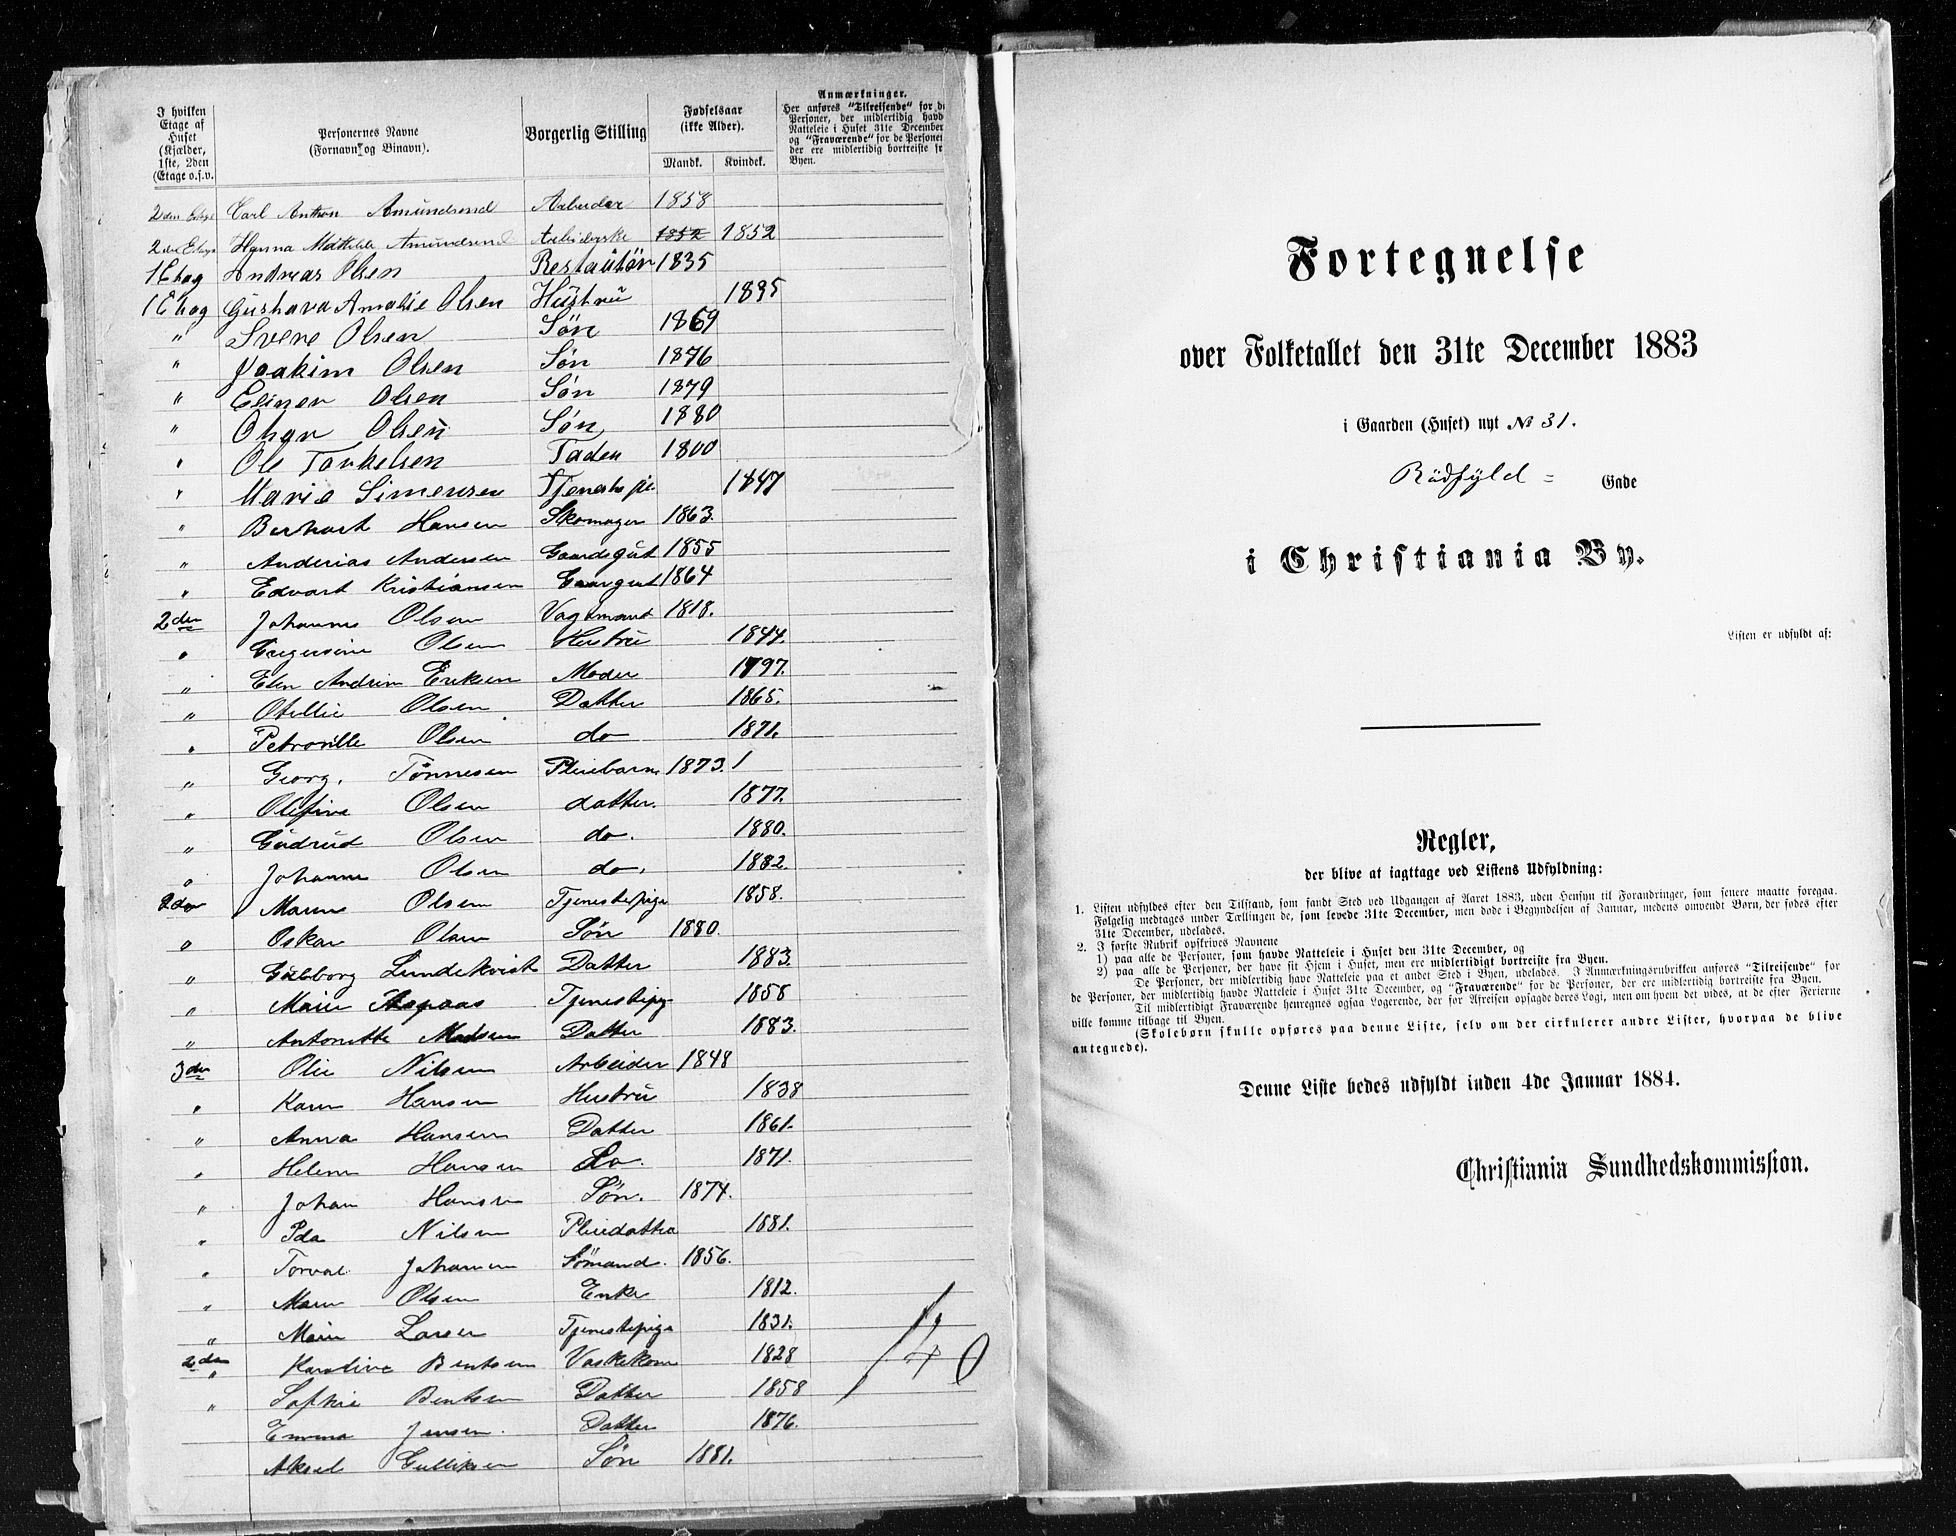 I hvilken Etage af Huset (Kjælder, 1ste, 2den Etage o.s.v.
Personernes Navne (Fornavn og Binavn).
Borgerlig Stilling
Fødselsaar (ikke Alder).
Mandk. Kvindek.
Anmærkninger.
Her anføres "Tilreisende" for de
Personer, der midlertidig havde
Natteleie i Huset 31te December
og "Fraværende" for de Personer
der ere midlertidig bortreiste fr
Byen.
2den Etage Carl Anthon Amundsend Arbeider 1858
2den Etage Hanna Mathilde Amundsend Arbeiderske 1852 1852
1 Etag Andreas Olsen Restautör 1835
1 Etag Gustava Amalie Olsen Hüstru 1835
" Svere Olsen Sön 1869
" Joakim Olsen Søn 1876
" Einer Olsen Søn 1879
" Olsen Søn 1880
" Ole Torkelsen Faden 1800
" Marie Simensen Tjenestepie. 1847
" Berhart Hansen Skomager 1863.
" Anderias Andersen Gaardsgüt 1855
" Edvart Kristiansen Gaargut 1864
2den Johannes Olsen Vogtmand 1818.
" Gregersine Olsen Hustru 1844.
" Elen Andrine Eriksen Moder 1797.
" Otellie Olsen Datter 1865.
" Petroville Olsen do 1871.
" Georg. Tönnesen Pleiebarn 1873. 1
" Olefine Olsen datter. 1877.
" Güdrud Olsen do. 1880.
" Johanne Olsen do. 1882.
2den Maren Olsen Tjenestepige 1858.
" Oskar Olsen Sön 1880.
" Gulborg Lundekvist Datter 1883.
" Marie Tjenestepig 1858
" Antonette Madsen Datter 1883.
3den Olie Nilsen Arbeider 1848
" Karen Hansen Hustru 1838
" Anna Hansen Datter 1861.
" Helene Hansen Do. 1871.
" Johan Hansen Sön. 1874.
" Ida Nilsen Pleiedatter 1881.
" Torval Johansen Sömand. 1856.
" Maren Olsen Enke 1812.
" Marie Larsen Tjenestepige 1831.
2den " Karoline Bentsen Vaskekone 1828
" Sofhie Bentsen Datter 1858
Emma Jensen. Datter 1876.
Aksel Gulliksen Sön 1881.
40
Fortegnelse
over Folketallet den 31te December 1883
i Gaarden (Huset) nyt No 31.
Rödfyld = Gade
i Christiania By.
Listen er udfyldt af:
Regler,
der blive at iagttage ved Listens Udfyldning:
1. Listen udfyldes efter den Tilstand, som fandt Sted ved Udgangen af Aaret 1883, uden Hensyn til Forandringer, som senere maatte foregaa.
Følgelig medtages under Tællingen de, som levede 31te December, men døde i Begyndelsen af Januar, medens omvendt Børn, der fødes efter
31te December, udelades.
2. I første Rubrik opskrives Navnene
1) paa alle de Personer, som havde Natteleie i Huset den 31te December, og
2) paa alle de Personer, der have sit Hjem i Huset, men ere midlertidigt bortreiste fra Byen.
De Personer, der midlertidig have Natteleie paa et andet Sted i Byen, udelades. I Anmærkningsrubrikken anføres "Tilreisende" for
de Personer, der midlertidig havde Natteleie i Huset 31te December, og "Fraværende" for de Personer, der ere midlertidig bortreiste fra Byen.
Til midlertidigt Fraværende henregnes ogsaa Logerende, der før Afreisen opsagde deres Logi, men om hvem det vides, at de efter Ferierne
ville komme tilbage til Byen.
(Skolebørn skulle opføres paa denne Liste, selv om der cirkulerer andre Lister, hvorpaa de blive
antegnede).
Denne Liste bedes udfyldt inden 4de Januar 1884.
Christiania Sundhedskommission.